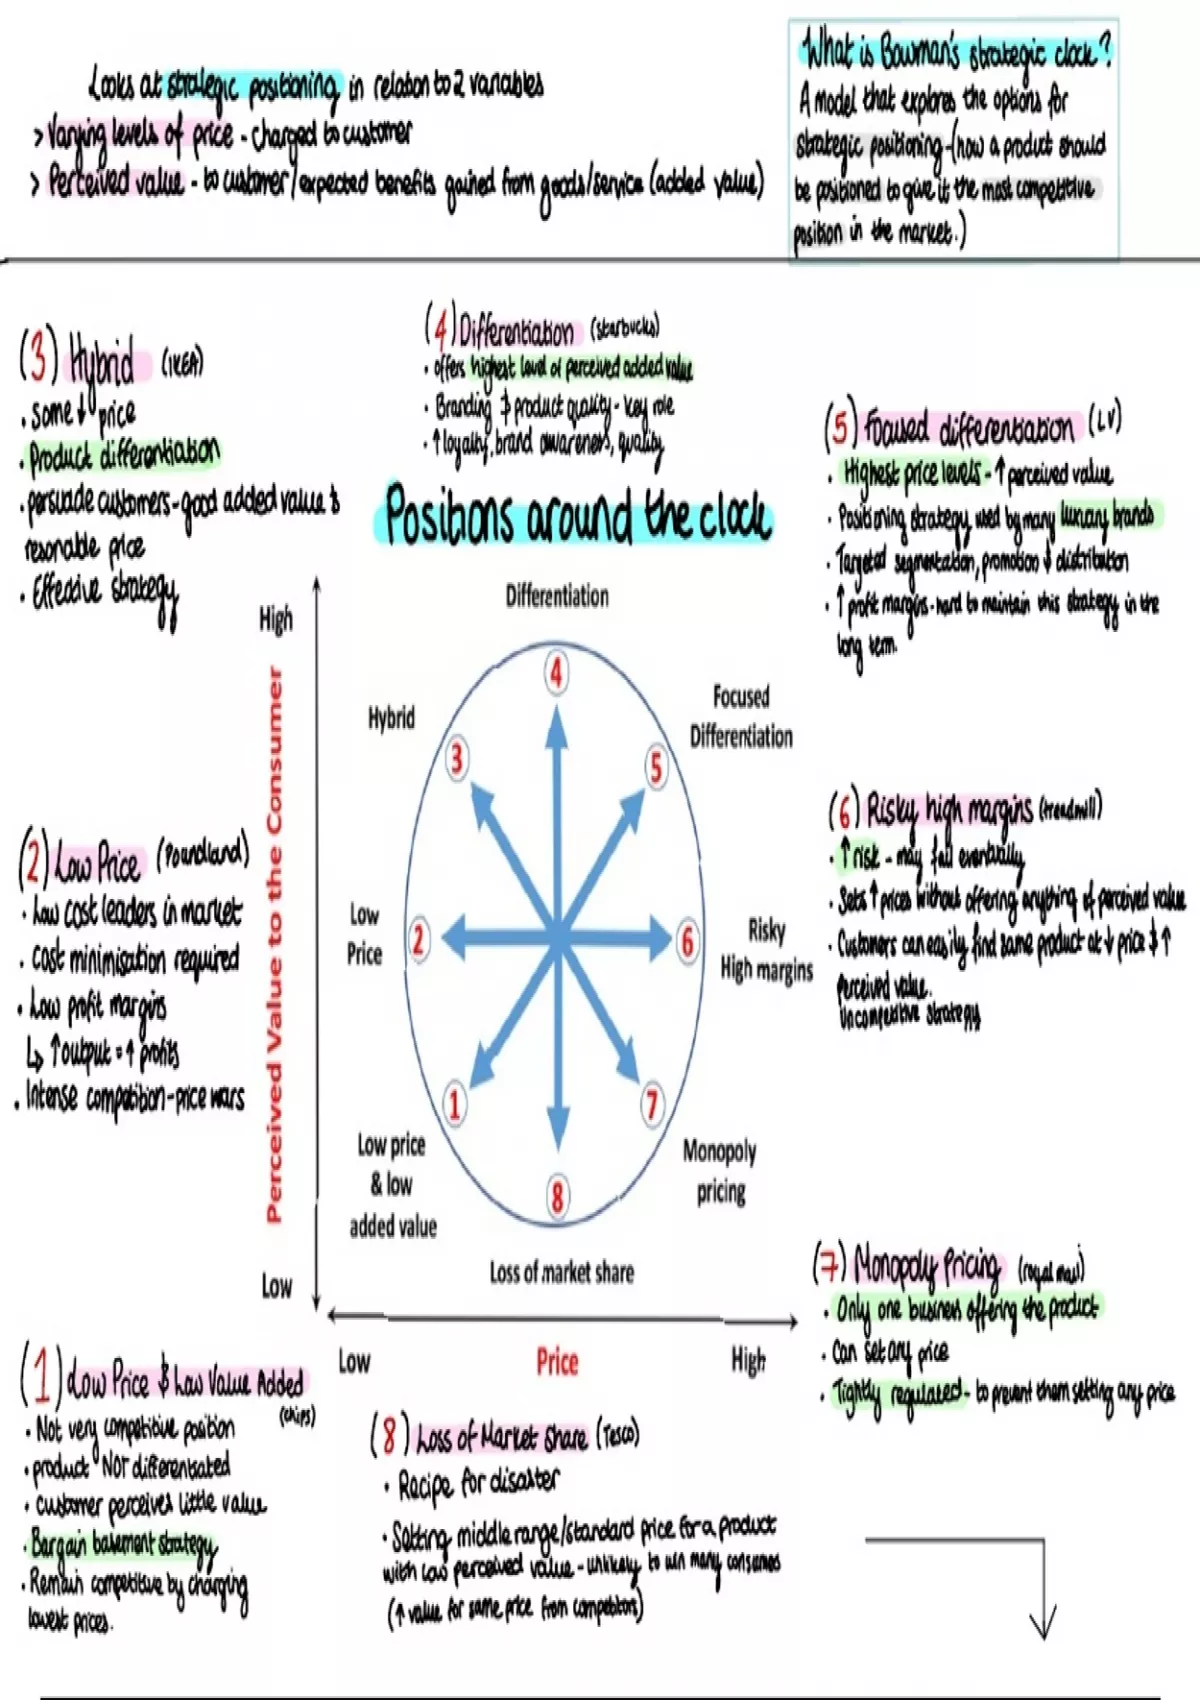 Looks at strategic positioning in relation to 2 variables
> Varying levels of price - charged to customer
> Perceived value - to customer/expected benefits gained from goods/service (added value)
What is Bowman's strategic clock?
A model that explores the options for
strategic positioning - (how a product should
be positioned to give it the most competitive
position in the market.)
(3) Hybrid (IKEA)
• some ↓ price
• Product differentiation
• persuade customers - good added value &
resonable price
• Effective strategy
(4) Differentiation (starbucks)
• offers highest level of perceived added value
• Branding & product quality - key role
• ↑ loyalty, brand awareness, quality
(5) Focused differentiation (LV)
• Highest price levels - ↑ perceived value
• Positioning strategy used by many luxury brands
• Targeted segmentation, promotion & distribution
• ↑ profit margins - hard to maintain this strategy in the
long term.
Positions around the clock
Differentiation
High
Hybrid
Focused
Differentiation
4
3
5
Perceived Value to the Consumer
(2) Low Price (Poundland)
• Low cost leaders in market
• cost minimisation required
• Low profit margins
↳ ↑ output = ↑ profits
• Intense competition - price wars
(6) Risky high margins (treadmill)
• ↑ risk - may fail eventually
• Sets ↑ prices without offering anything of perceived value
• Customers can easily find same product at ↓ price & ↑
perceived value.
Uncompetitive strategy
Low
Price
2
6
Risky
High margins
1
7
8
Low price
& low
added value
Monopoly
pricing
Loss of market share
Low
Low
Price
High
(7) Monopoly Pricing (royal mail)
• Only one business offering the product
• Can set any price
• Tightly regulated - to prevent them setting any price
(1) Low Price & Low Value Added
(chips)
• Not very competitive position
• product NOT differentiated
• customer perceives little value
• Bargain basement strategy
• Remain competitive by charging
lowest prices.
(8) Loss of Market Share (Tesco)
• Recipe for disaster
• Setting middle range/standard price for a product
with low perceived value - unlikely to win many consumers
(↑ value for same price from competitors)